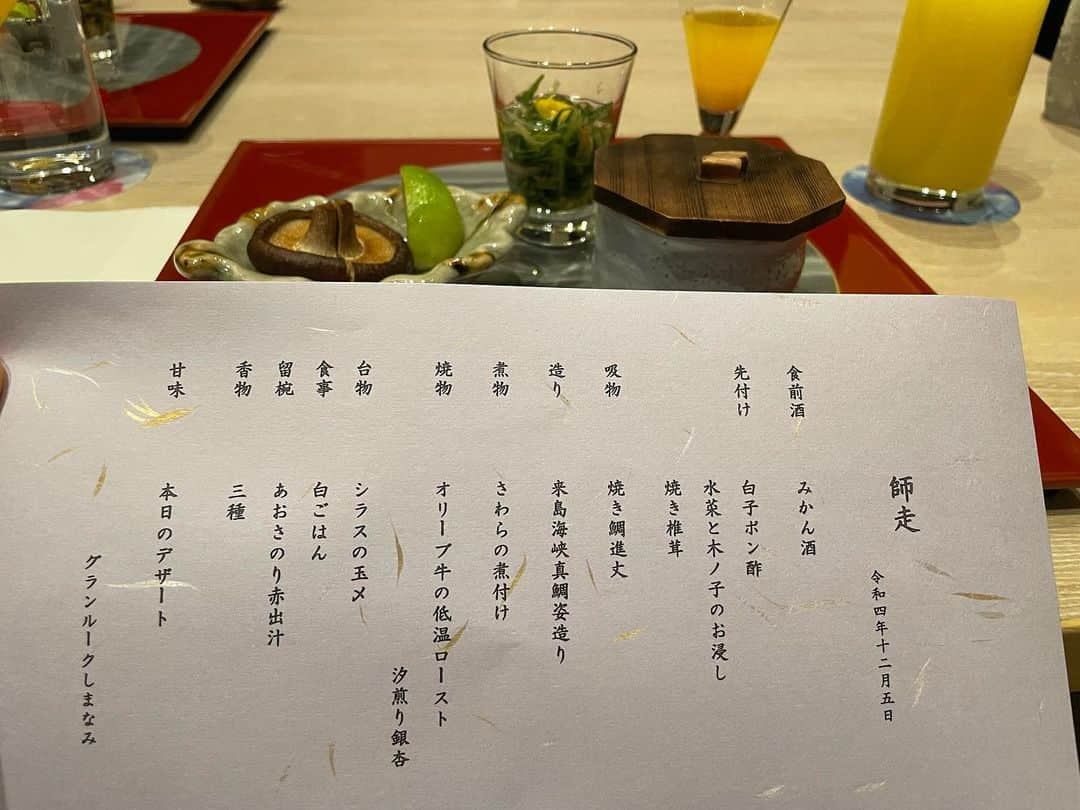 師走
令和四年十二月五日
食前酒 みかん酒
先付け 白子ポン酢
水菜と木ノ子のお浸し
焼き椎茸
吸物 焼き鯛進丈
造り 来島海峡真鯛姿造り
煮物 さわらの煮付け
焼物 オリーブ牛の低温ロースト
汐煎り銀杏
台物 シラスの玉〆
食事 白ごはん
留椀 あおさのり赤出汁
香物 三種
甘味 本日のデザート
グランルークしまなみ